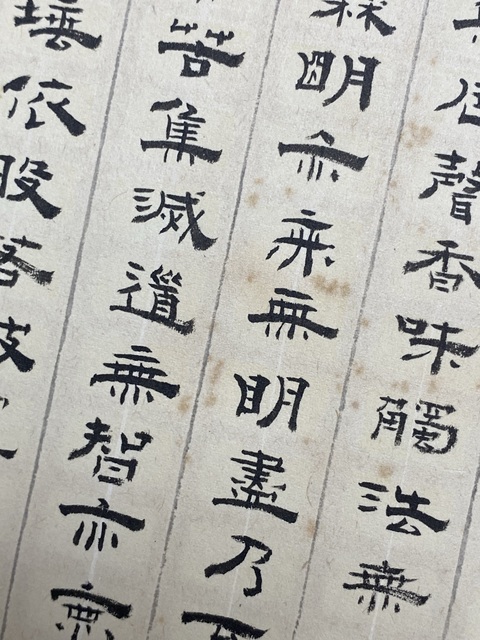 色聲香味觸法無
無明亦無無明盡乃至
苦集滅道無智亦無
埵依般若波